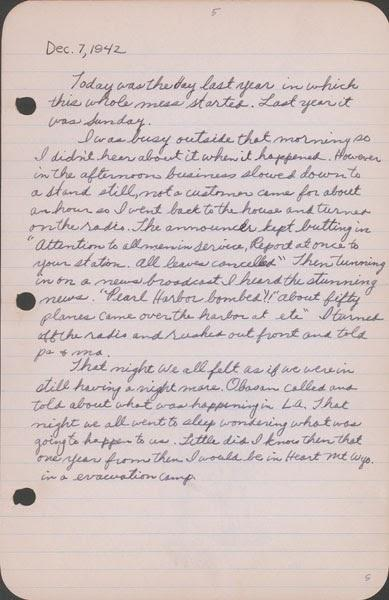 5
Dec. 7, 1942
Today was the day last year in which
this whole mess started. Last year it
was Sunday.
I was busy outside that morning so
I didn't hear about it when it happened. However
in the afternoon business slowed down to
a stand still, not a customer came for about
an hour so I went back to the house and turned
on the radio. The announcer kept butting in
"Attention to all men in service, Report at once to
your station. All leaves cancelled" Then tunning
in on a news broadcast I heard the stunning
news. "Pearl Harbor bombed!!" about fifty
planes came over the harbor at etc" I turned
off the radio and rushed out front and told
pa & ma.
That night we all felt as if we were in
still having a night mare. Obasan called and
told about what was happening in L.A. That
night we all went to sleep wondering what was
going to happen to us. Little did I know then that
one year from then I would be in Heart Mt Wyo.
in a evacuation camp.
5